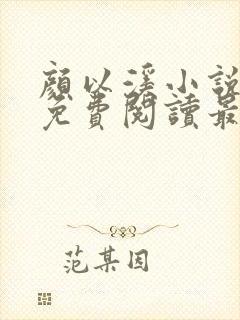 顏以溪小說
免費閱讀最
范某因